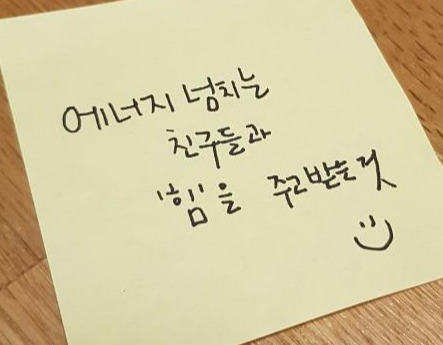 에너지 넘치는
친구들과
"힘"을 주고받을 것